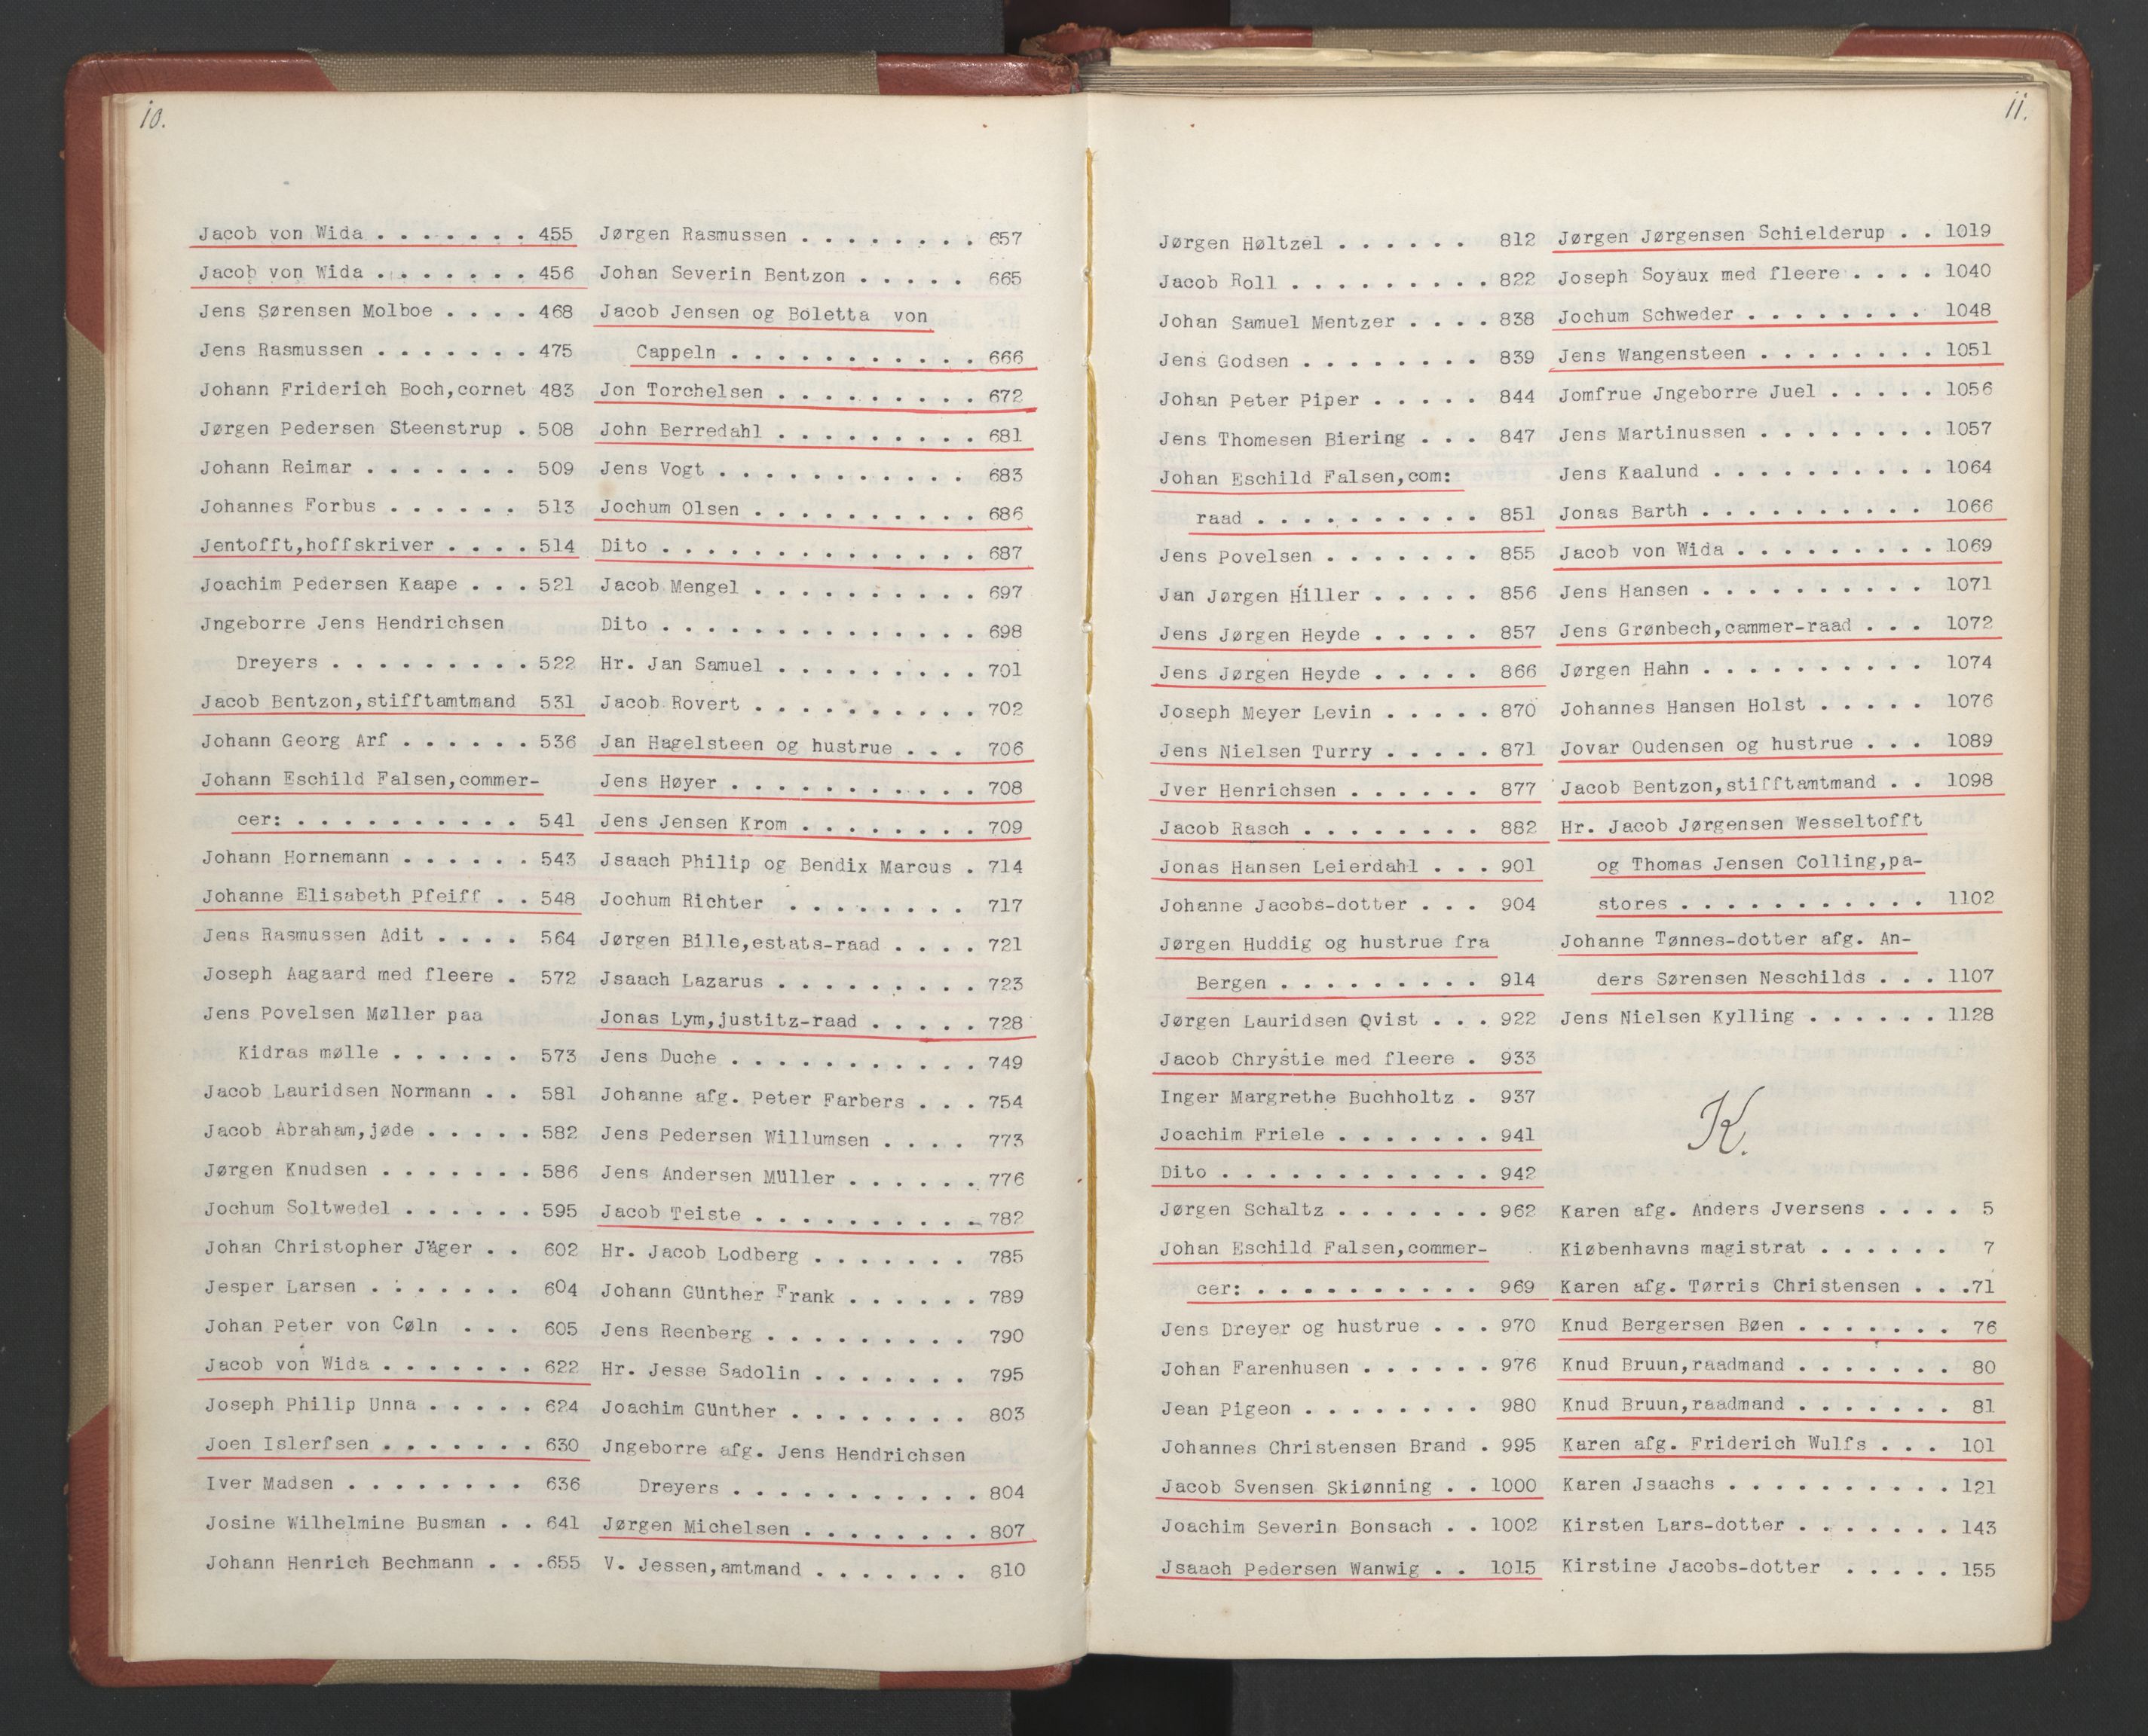 10.
Jacob von Wida . . . . . . . 455
Jacob von Wida . . . . . . . 456
Jens Sørensen Molboe . . . . 468
Jens Rasmussen . . . . . . . 475
Johann Friderich Boch,cornet 483
Jørgen Pedersen Steenstrup . 508
Johann Reimar . . . . . . . 509
Johannes Forbus . . . . . . 513
Jentofft,hoffskriver . . . . 514
Joachim Pedersen Kaape . . . 521
Jngeborre Jens Hendrichsen
Dreyers . . . . . . . . . 522
Jacob Bentzon,stifftamtmand 531
Johann Georg Arf . . . . . . 536
Johann Eschild Falsen,commer-
cer: . . . . . . . . . . 541
Johann Hornemann . . . . . . 543
Johanne Elisabeth Pfeiff . . 548
Jens Rasmussen Adit . . . . 564
Joseph Aagaard med fleere . 572
Jens Povelsen Møller paa
Kidras mølle . . . . . . 573
Jacob Lauridsen Normann . . 581
Jacob Abraham,jøde . . . . . 582
Jørgen Knudsen . . . . . . . 586
Jochum Soltwedel . . . . . . 595
Johan Christopher Jäger . . 602
Jesper Larsen . . . . . . . 604
Johan Peter von Cøln . . . 605
Jacob von Wida . . . . . . . 622
Joseph Philip Unna . . . . . 624
Joen Islerfsen . . . . . . . 630
Iver Madsen . . . . . . . . 636
Josine Wilhelmine Busman . . 641
Johann Henrich Bechmann . . .655
Jørgen Rasmussen . . . . . . . . 657
Johan Severin Bentzon . . . . . 665
Jacob Jensen og Boletta von
Cappeln . . . . . . . . . . . 666
Jon Torchelsen . . . . . . . . . 672
John Berredahl . . . . . . . . . 681
Jens Vogt . . . . . . . . . . . 683
Jochum Olsen . . . . . . . . . . 686
Dito . . . . . . . . . . . . . . 687
Jacob Mengel . . . . . . . . . . 697
Dito . . . . . . . . . . . . . . 698
Hr. Jan Samuel . . . . . . . . . 701
Jacob Rovert . . . . . . . . . . 702
Jan Hagelsteen og hustrue . . . 706
Jens Høyer . . . . . . . . . . . 708
Jens Jensen Krom . . . . . . . . 709
Jsaach Philip og Bendix Marcus . 714
Jochum Richter . . . . . . . . 717
Jørgen Bille,estats-raad . . . . 721
Jsaach Lazarus . . . . . . . . . 723
Jonas Lym,justitz-raad . . . . . 728
Jens Duche . . . . . . . . . . . 749
Johanne afg. Peter Farbers . . . 754
Jens Pedersen Willumsen . . . . 773
Jens Andersen Müller . . . . . . 776
Jacob Teiste . . . . . . . . . . 782
Hr. Jacob Lodberg . . . . . . . 785
Johann Günther Frank . . . . . . 789
Jens Reenberg . . . . . . . . . 790
Hr. Jesse Sadolin . . . . . . . 795
Joachim Günther . . . . . . . . 803
Jngeborre afg. Jens Hendrichsen
Dreyers . . . . . . . . . . . 804
Jørgen Michelsen . . . . . . . . 807
V. Jessen,amtmand . . . . . . . 810
11.
Jørgen Høltzel . . . . . . 812
Jacob Roll . . . . . . . . . 822
Johan Samuel Mentzer . . . . 838
Jens Godsen . . . . . . . . 839
Johan Peter Piper . . . . . 844
Jens Thomesen Biering . . . 847
Johan Eschild Falsen,com:
raad . . . . . . . . . . 851
Jens Povelsen . . . . . . . 855
Jan Jørgen Hiller . . . . . 856
Jens Jørgen Heyde . . . . . 857
Jens Jørgen Heyde . . . . . 866
Joseph Meyer Levin . . . . . 870
Jens Nielsen Turry . . . . . 871
Jver Henrichsen . . . . . . 877
Jacob Rasch . . . . . . . . 882
Jonas Hansen Leierdahl . . . 901
Johanne Jacobs-dotter . . . 904
Jørgen Huddig og hustrue fra
Bergen . . . . . . . . . 914
Jørgen Lauridsen Qvist . . . 922
Jacob Chrystie med fleere . 933
Inger Margrethe Buchholtz . 937
Joachim Friele . . . . . . . 941
Dito . . . . . . . . . . . . 942
Jørgen Schaltz . . . . . . . 962
Johan Eschild Falsen,commer-
cer: . . . . . . . . . . 969
Jens Dreyer og hustrue . . . 970
Johan Farenhusen . . . . . . 976
Jean Pigeon . . . . . . . . 980
Johannes Christensen Brand . 995
Jacob Svensen Skiønning . . 1000
Joachim Severin Bonsach . . 1002
Jsaach Pedersen Wanwig . . 1015
Jørgen Jørgensen Schielderup . . 1019
Joseph Soyaux med fleere . . . . 1040
Jochum Schweder . . . . . . . . 1048
Jens Wangensteen . . . . . . . . 1051
Jomfrue Jngeborre Juel . . . . . 1056
Jens Martinussen . . . . . . . . 1057
Jens Kaalund . . . . . . . . . . 1064
Jonas Barth . . . . . . . . . . 1066
Jacob von Wida . . . . . . . . . 1069
Jens Hansen . . . . . . . . . . 1071
Jens Grønbech,cammer-raad . . . 1072
Jørgen Hahn . . . . . . . . . . 1074
Johannes Hansen Holst . . . . . 1076
Jovar Oudensen og hustrue . . . 1089
Jacob Bentzon,stifftamtmand . . 1098
Hr. Jacob Jørgensen Wesseltofft
og Thomas Jensen Colling,pa-
stores . . . . . . . . . . . 1102
Johanne Tønnes-dotter afg. An-
ders Sørensen Neschilds . . . 1107
Jens Nielsen Kylling . . . . . . 1128
K.
Karen afg. Anders Jversens . . . . 5
Kiøbenhavns magistrat . . . . . . 7
Karen afg. Tørris Christensen . . .71
Knud Bergersen Bøen . . . . . . . 76
Knud Bruun,raadmand . . . . . . . 80
Knud Bruun,raadmand . . . . . . . 81
Karen afg. Friderich Wulfs . . . 101
Karen Jsaachs . . . . . . . . . . 121
Kirsten Lars-dotter . . . . . . . 143
Kirstine Jacobs-dotter . . . . . 155